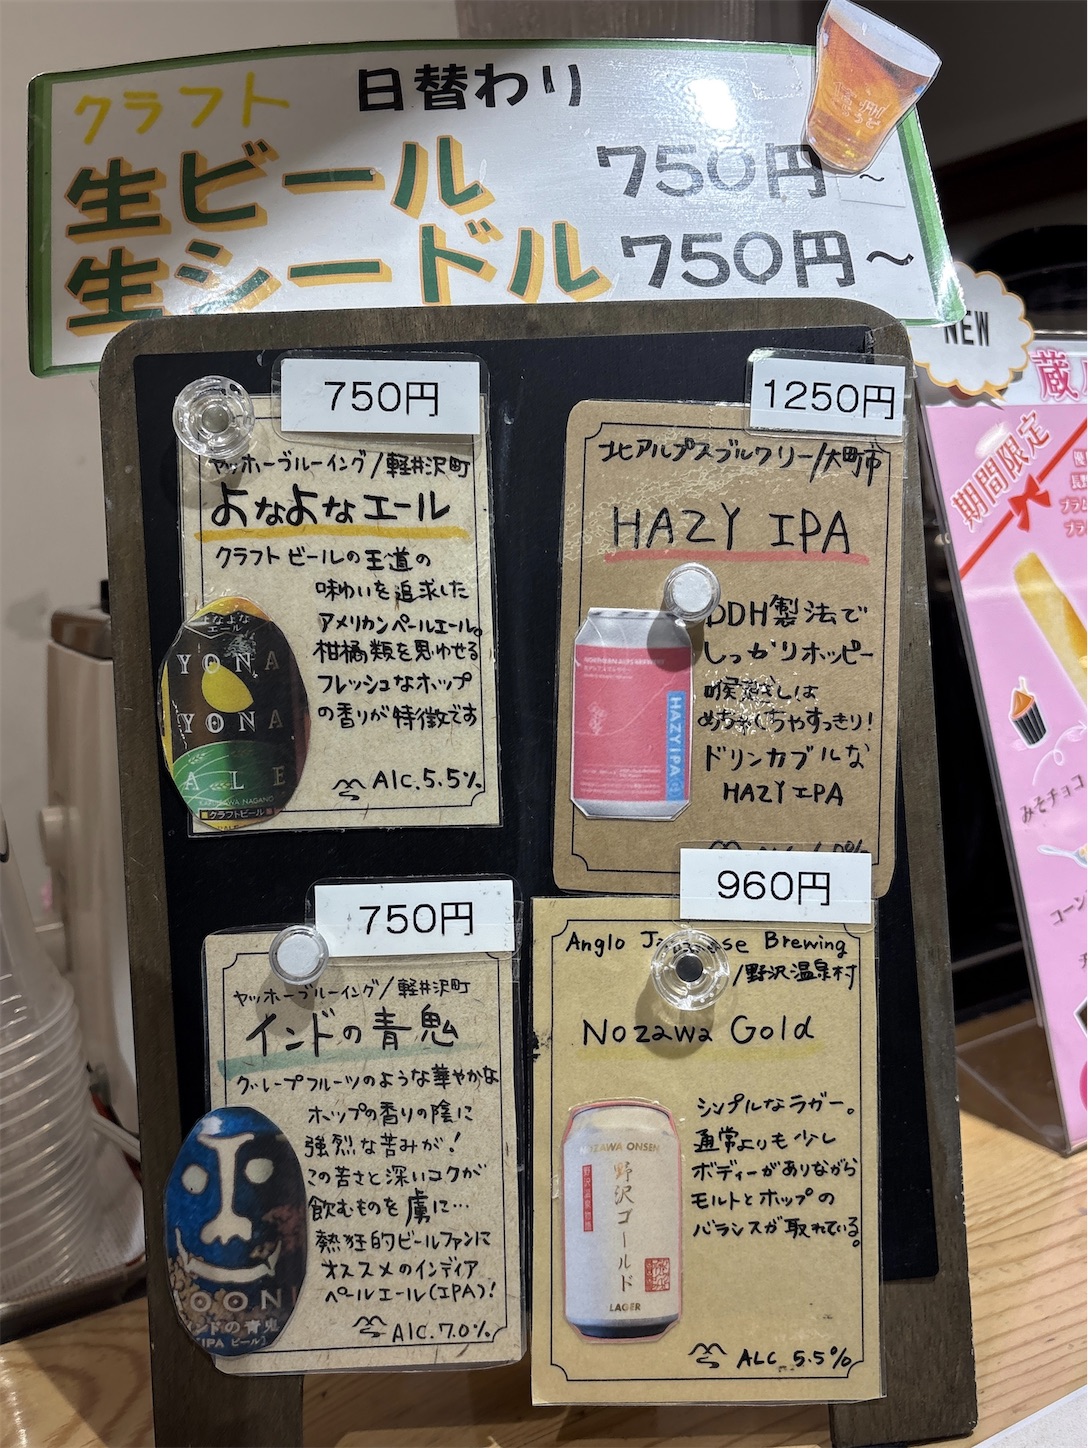 クラフト 日替わり
生ビール 750円~
生シードル 750円~
NEW
750円
ヤッホーブルーイング/軽井沢町
よなよなエール
クラフトビールの王道の
味わいを追求した
アメリカンペールエール。
柑橘類を思わせる
フレッシュなホップ
の香りが特徴です
Alc.5.5%
よなよな
エール
YONA
YONA
ALE
KARUIZAWA NAGANO
クラフトビール
1250円
北アルプスブルワリー/大町市
HAZY IPA
DDH製法で
しっかりホッピー
喉越しは
めちゃくちゃすっきり!
ドリンカブルな
HAZY IPA
NORTHERN ALPS BREWERY
HAZY IPA
750円
ヤッホーブルーイング/軽井沢町
インドの青鬼
グレープフルーツのような華やかな
ホップの香りの陰に
強烈な苦みが!
この苦さと深いコクが
飲むものを虜に…
熱狂的ビールファンに
オススメのインディア
ペールエール(IPA)!
Alc.7.0%
OONI
インドの青鬼
IPA ビール
960円
Anglo Japanese Brewing
/野沢温泉村
Nozawa Gold
シンプルなラガー。
通常よりも少し
ボディーがありながら
モルトとホップの
バランスが取れている。
ALC 5.5%
NOZAWA ONSEN
野沢ゴールド
LAGER
蔵
期間限定
みそチョコ
コーン